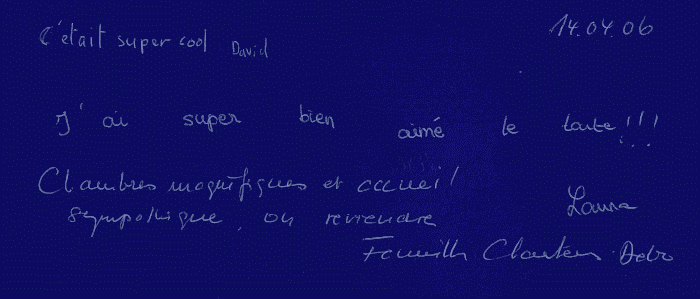 C'était super cool David
14.04.06
J'ai super bien aimé le tarte !!!
Chambres magnifiques et accueil
sympathique, on reviendra
Laura
Famille